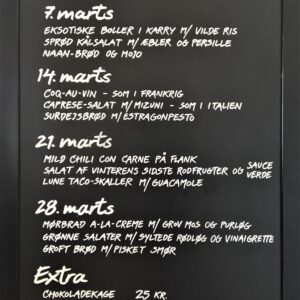 7. marts
EKSOTISKE BOLLER I KARRY M/ VILDE RIS
SPRØD KÅLSALAT M/ ÆBLER OG PERSILLE
NAAN-BRØD OG MOJO
14. marts
COQ-AU-VIN - SOM I FRANKRIG
CAPRESE-SALAT M/ MIZUNI - SOM I ITALIEN
SURDEJSBRØD M/ ESTRAGONPESTO
21. marts
MILD CHILI CON CARNE PÅ FLANK
SALAT AF VINTERENS SIDSTE RODFRUGTER OG SAUCE VERDE
LUNE TACO-SKALLER M/ GUACAMOLE
28. marts
MØRBRAD A-LA-CREME M/ GROV MOS OG PURLØG
GRØNNE SALATER M/ SYLTEDE RØDLØG OG VINAIGRETTE
GROFT BRØD M/ PISKET SMØR
Extra
CHOKOLADEKAGE 25 KR.